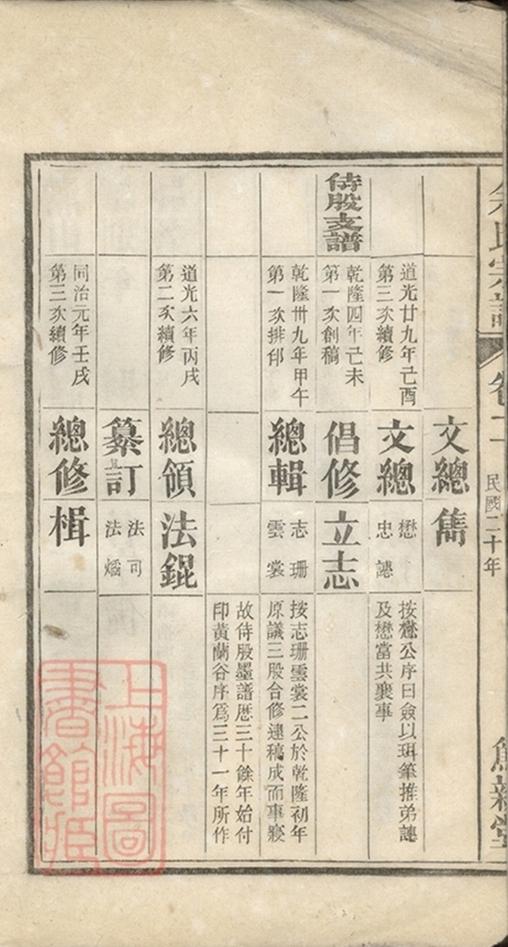 氏宗譜
卷二
民國二十年
堂
文總 雋
道光廿九年己酉
第三次續修
文總
懋
忠 譓
按懋公序曰僉以珥筆推弟譓
及懋當共襄事
侍股支譜
乾隆四年己未
第一次創稿
倡修 立志
乾隆卅九年甲午
第一次排印
總輯
志珊
雲裳
按志珊雲裳二公於乾隆初年
原議三股合修逮稿成而事寢
故侍股墨譜歷三十餘年始付
印黃蘭谷序爲三十一年所作
道光六年丙戌
第二次續修
總領 法錕
纂訂
法可
法燏
同治元年壬戌
第三次續修
總修 楫
上海圖
書館藏